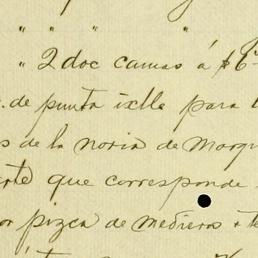 " " " "
" 2 doc camas á $6
. de punta ixtle para
s de la noria de Marq
rte que corresponde
or pizca de medieros + t